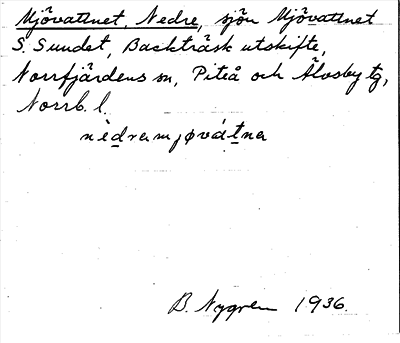 Mjövattnet, Nedre, sjön Mjövattnet
S. Sundet, Backträsk utskifte,
Norrfjärdens sn, Piteå och Älvsby tg,
Norrb. l.
nèdramjøvátna
B. Nygren 1936.